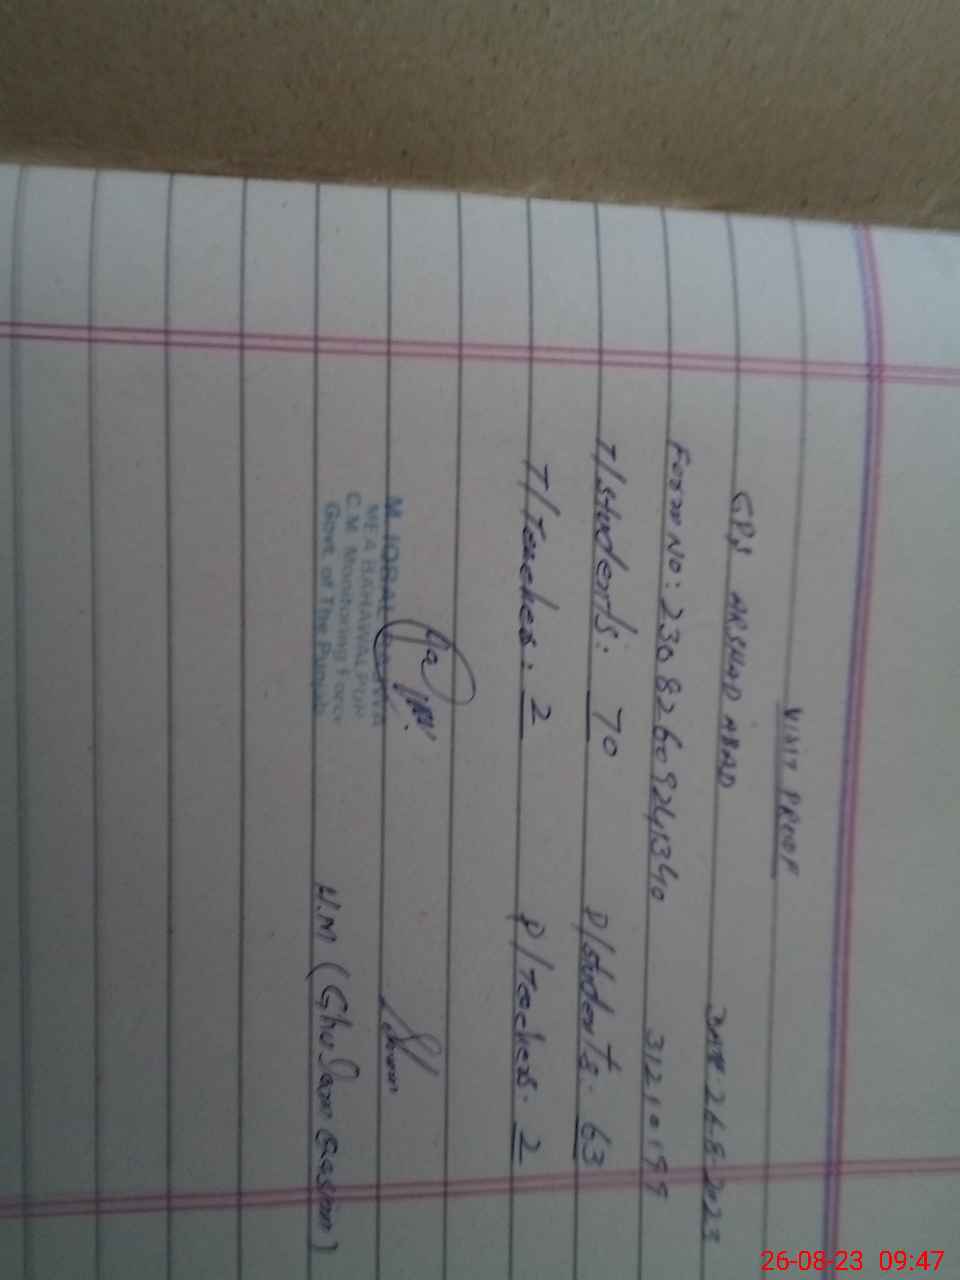 VISIT PROOF
GPS ARSHAD ABAD DATE 26-8-2023
Form No: 23082609241340 31210199
T/students: 70 P/students: 63
T/Teachers: 2 P/Teachers: 2
M. IQBAL
MEA BAHAWALPUR
C.M. Monitoring Force
Govt. of The Punjab
H.M (Ghulam Qasim)
26-08-23 09:47